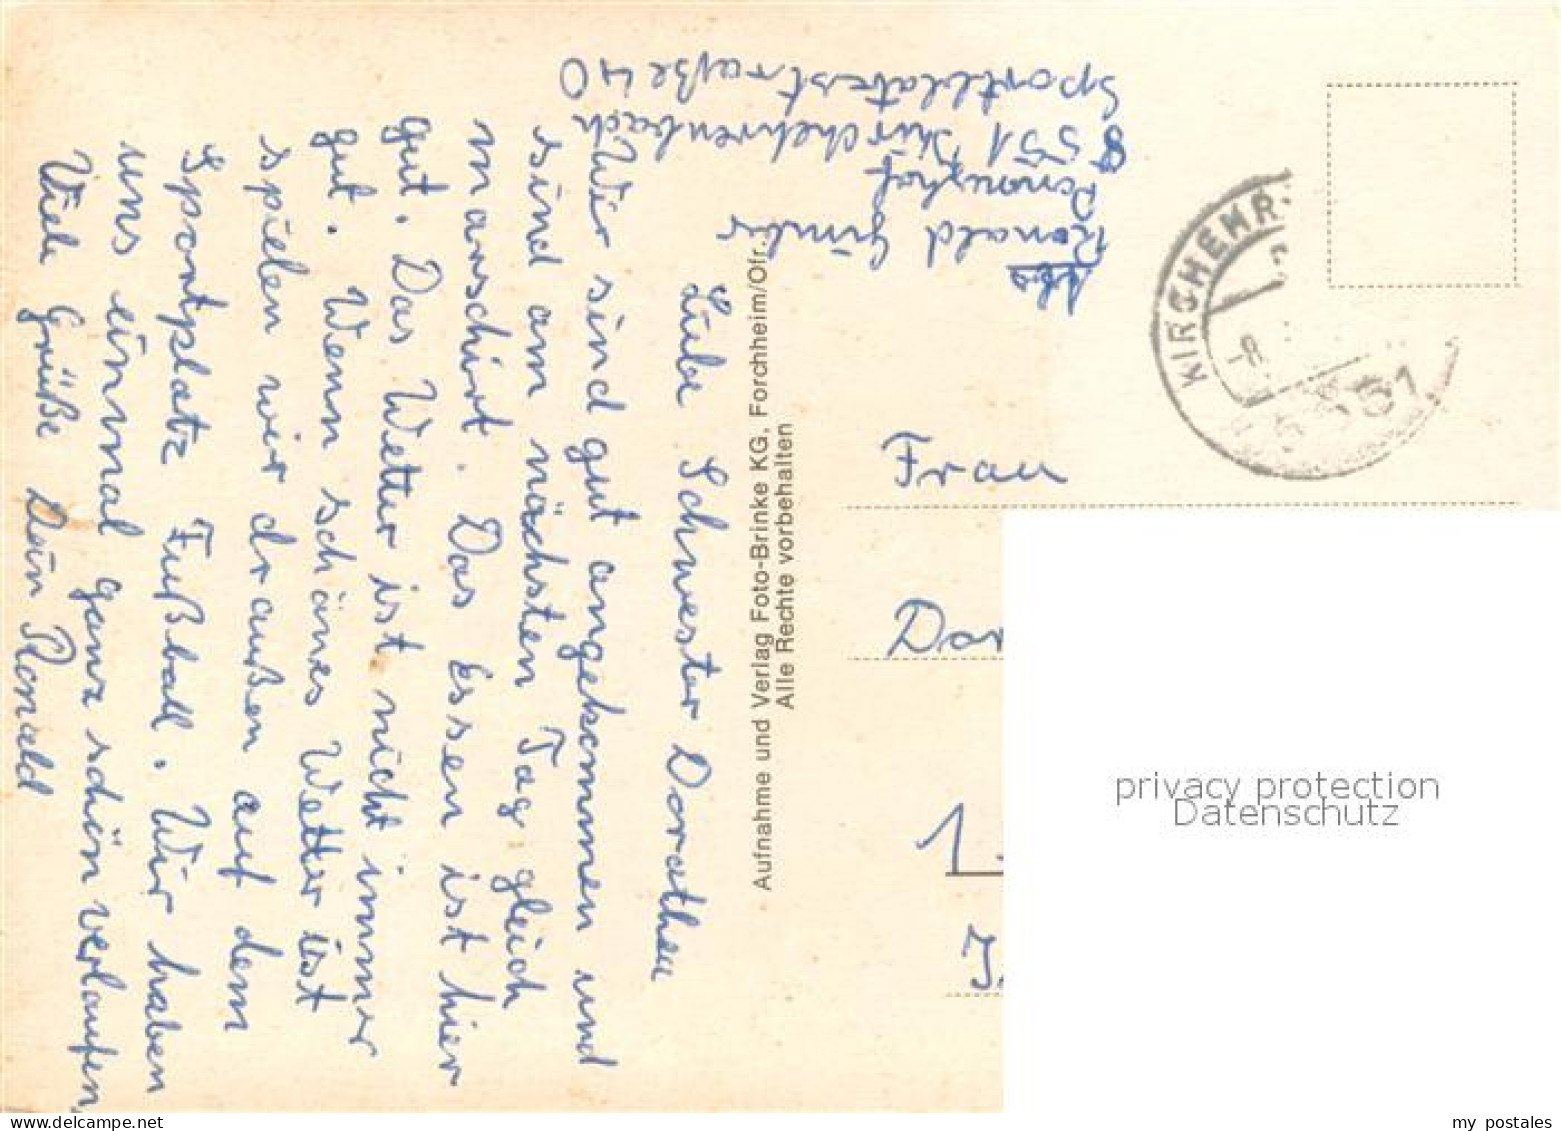 Liebe Schwester Dorathea
Wir sind gut angekommen und
sind am nächsten Tag gleich
marschirt. Das Essen ist hier
gut. Das Wetter ist nicht immer
gut. Wenn schönes Wetter ist
spielen wir draußen auf dem
Sportplatz Fußball. Wir haben
uns einmal ganz schön verlaufen,
Viele Grüße Dein Ronald
Aufnahme und Verlag Foto-Brinke KG, Forchheim/Ofr.
Alle Rechte vorbehalten
Abs
Ronald
8551 Kirchehrenbach
Sportplatzstraße 40
KIRCHEHR
-8.
8551
Frau
Dor
1
privacy protection
Datenschutz
my postales